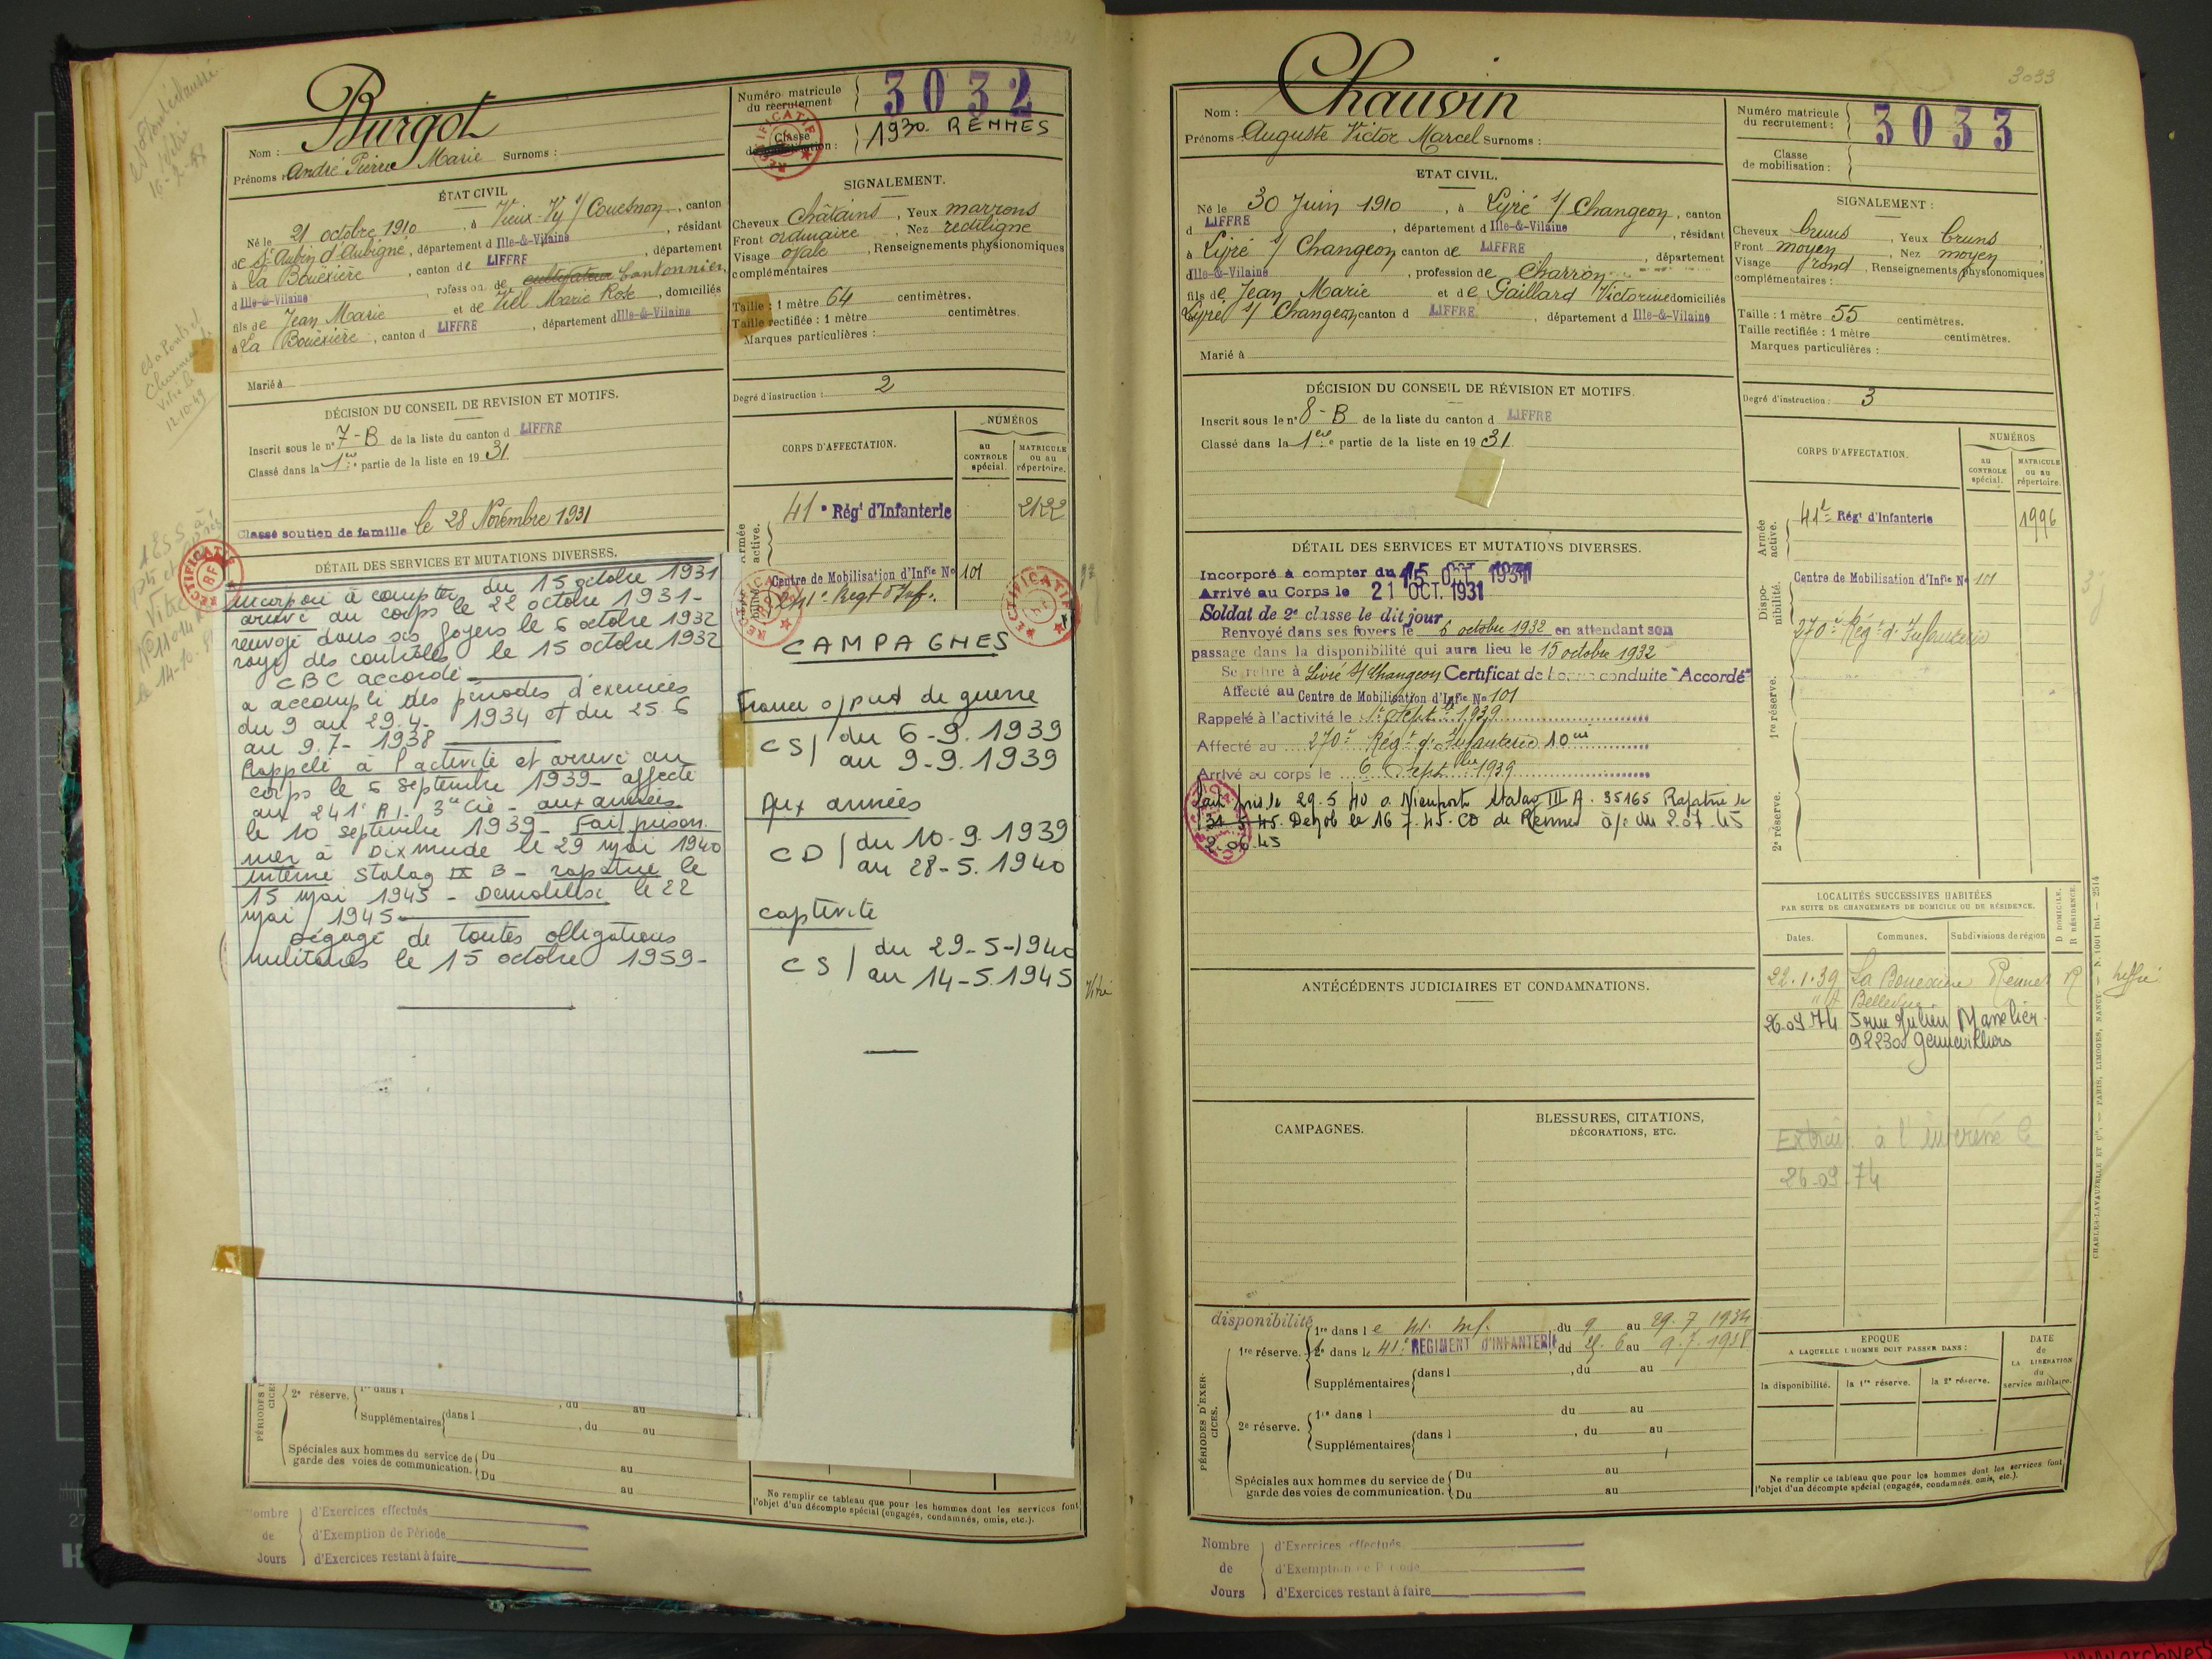 Burgot
Nom :
Prénoms : André Pierre Marie Surnoms :
Numéro matricule du recrutement 3032
Classe : 1930. RENNES
ÉTAT CIVIL
Né le 21 octobre 1910, à Vieux-Vy s/ Couesnon, canton
de St Aubin d'Aubigné, département d Ille-&-Vilaine, résidant
à La Bouëxière, canton de LIFFRE, département
d Ille-&-Vilaine, profession de cultivateur Cantonnier,
fils de Jean Marie et de Viel Marie Rose, domiciliés
à La Bouëxière, canton d LIFFRE, département d Ille-&-Vilaine
Marié à
SIGNALEMENT.
Cheveux Châtains, Yeux marrons
Front ordinaire, Nez rectiligne
Visage ovale, Renseignements physionomiques
complémentaires
Taille : 1 mètre 64 centimètres.
Taille rectifiée : 1 mètre centimètres.
Marques particulières :
Degré d'instruction : 2
DÉCISION DU CONSEIL DE REVISION ET MOTIFS.
Inscrit sous le n° 7-B de la liste du canton d LIFFRE
Classé dans la 1ère partie de la liste en 1931
Classé soutien de famille le 28 Novembre 1931
CORPS D'AFFECTATION.
NUMÉROS
au CONTROLE spécial.
MATRICULE ou au répertoire.
41e Régt d'Infanterie 2122
Centre de Mobilisation d'Infie No 101
241e Regt d'Inf.
DÉTAIL DES SERVICES ET MUTATIONS DIVERSES.
Incorporé à compter du 15 octobre 1931
arrivé au corps le 22 octobre 1931-
renvoyé dans ses foyers le 6 octobre 1932
rayé des contrôles le 15 octobre 1932
CBC accordé
a accompli des périodes d'exercices
du 9 au 29.4. 1934 et du 25 6
au 9.7- 1938
Rappelé à l'activité et arrivé au
corps le 6 septembre 1939- affecté
au 241e RI- 3e Cie - aux armées
le 10 septembre 1939- Fait prison
nier à Dixmude le 29 mai 1940
interné Stalag IX B- rapatrié le
15 mai 1945 - Démobilisé le 22
mai 1945
Dégagé de toutes obligations
militaires le 15 octobre 1959-
CAMPAGNES
France s/pied de guerre
CS / du 6-9.1939
au 9-9.1939
Aux armées
CD / du 10-9.1939
au 28-5.1940
captivité
CS / du 29-5-1940
au 14-5.1945
Vitré
PÉRIODES D'EXERCICES
2e réserve. 1re dans l , du au
Supplémentaires dans l , du au
Spéciales aux hommes du service de garde des voies de communication. Du au
Du au
Ne remplir ce tableau que pour les hommes dont les services font
l'objet d'un décompte spécial (engagés, condamnés, omis, etc.).
Nombre de Jours
d'Exercices effectués
d'Exemption de Période
d'Exercices restant à faire
3033
Chauvin
Nom :
Prénoms : Auguste Victor Marcel Surnoms :
Numéro matricule du recrutement : 3033
Classe de mobilisation :
ETAT CIVIL.
Né le 30 Juin 1910, à Livré s/ Changeon, canton
d LIFFRE, département d Ille-&-Vilaine, résidant
à Livré s/ Changeon canton de LIFFRE, département
d Ille-&-Vilaine, profession de Charron
fils de Jean Marie et de Gaillard Victorine domiciliés
Livré s/ Changeon canton d LIFFRE, département d Ille-&-Vilaine
Marié à
SIGNALEMENT :
Cheveux bruns, Yeux bruns
Front moyen, Nez moyen
Visage rond, Renseignements physionomiques
complémentaires :
Taille : 1 mètre 55 centimètres.
Taille rectifiée : 1 mètre centimètres.
Marques particulières :
Degré d'instruction : 3
DÉCISION DU CONSEIL DE RÉVISION ET MOTIFS.
Inscrit sous le n° 8-B de la liste du canton d LIFFRE
Classé dans la 1ère partie de la liste en 1931.
CORPS D'AFFECTATION.
NUMÉROS
au CONTROLE spécial.
MATRICULE ou au répertoire.
Armée active.
41e Régt d'Infanterie 1996
Disponibilité.
Centre de Mobilisation d'Infie No 101
270e Régt d'Infanterie
1re réserve.
2e réserve.
DÉTAIL DES SERVICES ET MUTATIONS DIVERSES.
Incorporé à compter du 15 OCT. 1931
Arrivé au Corps le 21 OCT. 1931
Soldat de 2e classe le dit jour
Renvoyé dans ses foyers le 6 octobre 1932 en attendant son
passage dans la disponibilité qui aura lieu le 15 octobre 1932
Se retire à Livré s/ Changeon Certificat de bonne conduite "Accordé"
Affecté au Centre de Mobilisation d'Infie No 101
Rappelé à l'activité le 1er Sept. 1939
Affecté au 270e Régt d'Infanterie 10e Cie
Arrivé au corps le 6 Septbre 1939
Fait pris le 29.5 40 à Nieuport Stalag III A. 35165 Rapatrié le
31 5 45. Demob le 16 7.45. CD de Rennes à/c du 2.07.45
2.06.45
LOCALITÉS SUCCESSIVES HABITÉES
PAR SUITE DE CHANGEMENTS DE DOMICILE OU DE RÉSIDENCE.
Dates. Communes. Subdivisions de région D DOMICILE. R RÉSIDENCE.
22.1.39 La Bouexière Rennes R
Bellevue
26.09.74 5 rue Julien
92230 Gennevilliers
26-09-74
ANTÉCÉDENTS JUDICIAIRES ET CONDAMNATIONS.
CAMPAGNES.
BLESSURES, CITATIONS,
DÉCORATIONS, ETC.
PÉRIODES D'EXERCICES.
disponibilité
1re réserve. 1re dans le , du 9 au 29.7 1934
2e dans le 41e REGIMENT D'INFANTERIE, du 25.6 au 9.7.1938
Supplémentaires dans l , du au
2e réserve. 1re dans l du au
Supplémentaires dans l , du au
Spéciales aux hommes du service de garde des voies de communication. Du au
Du au
EPOQUE
A LAQUELLE L'HOMME DOIT PASSER DANS :
la disponibilité. la 1re réserve. la 2e réserve.
DATE de LA LIBÉRATION du service militaire.
Ne remplir ce tableau que pour les hommes dont les services font
l'objet d'un décompte spécial (engagés, condamnés, omis, etc.).
CHARLES-LAVAUZELLE ET Cie. — PARIS, LIMOGES, NANCY
Nombre de Jours
d'Exercices effectués
d'Exemption de Période
d'Exercices restant à faire